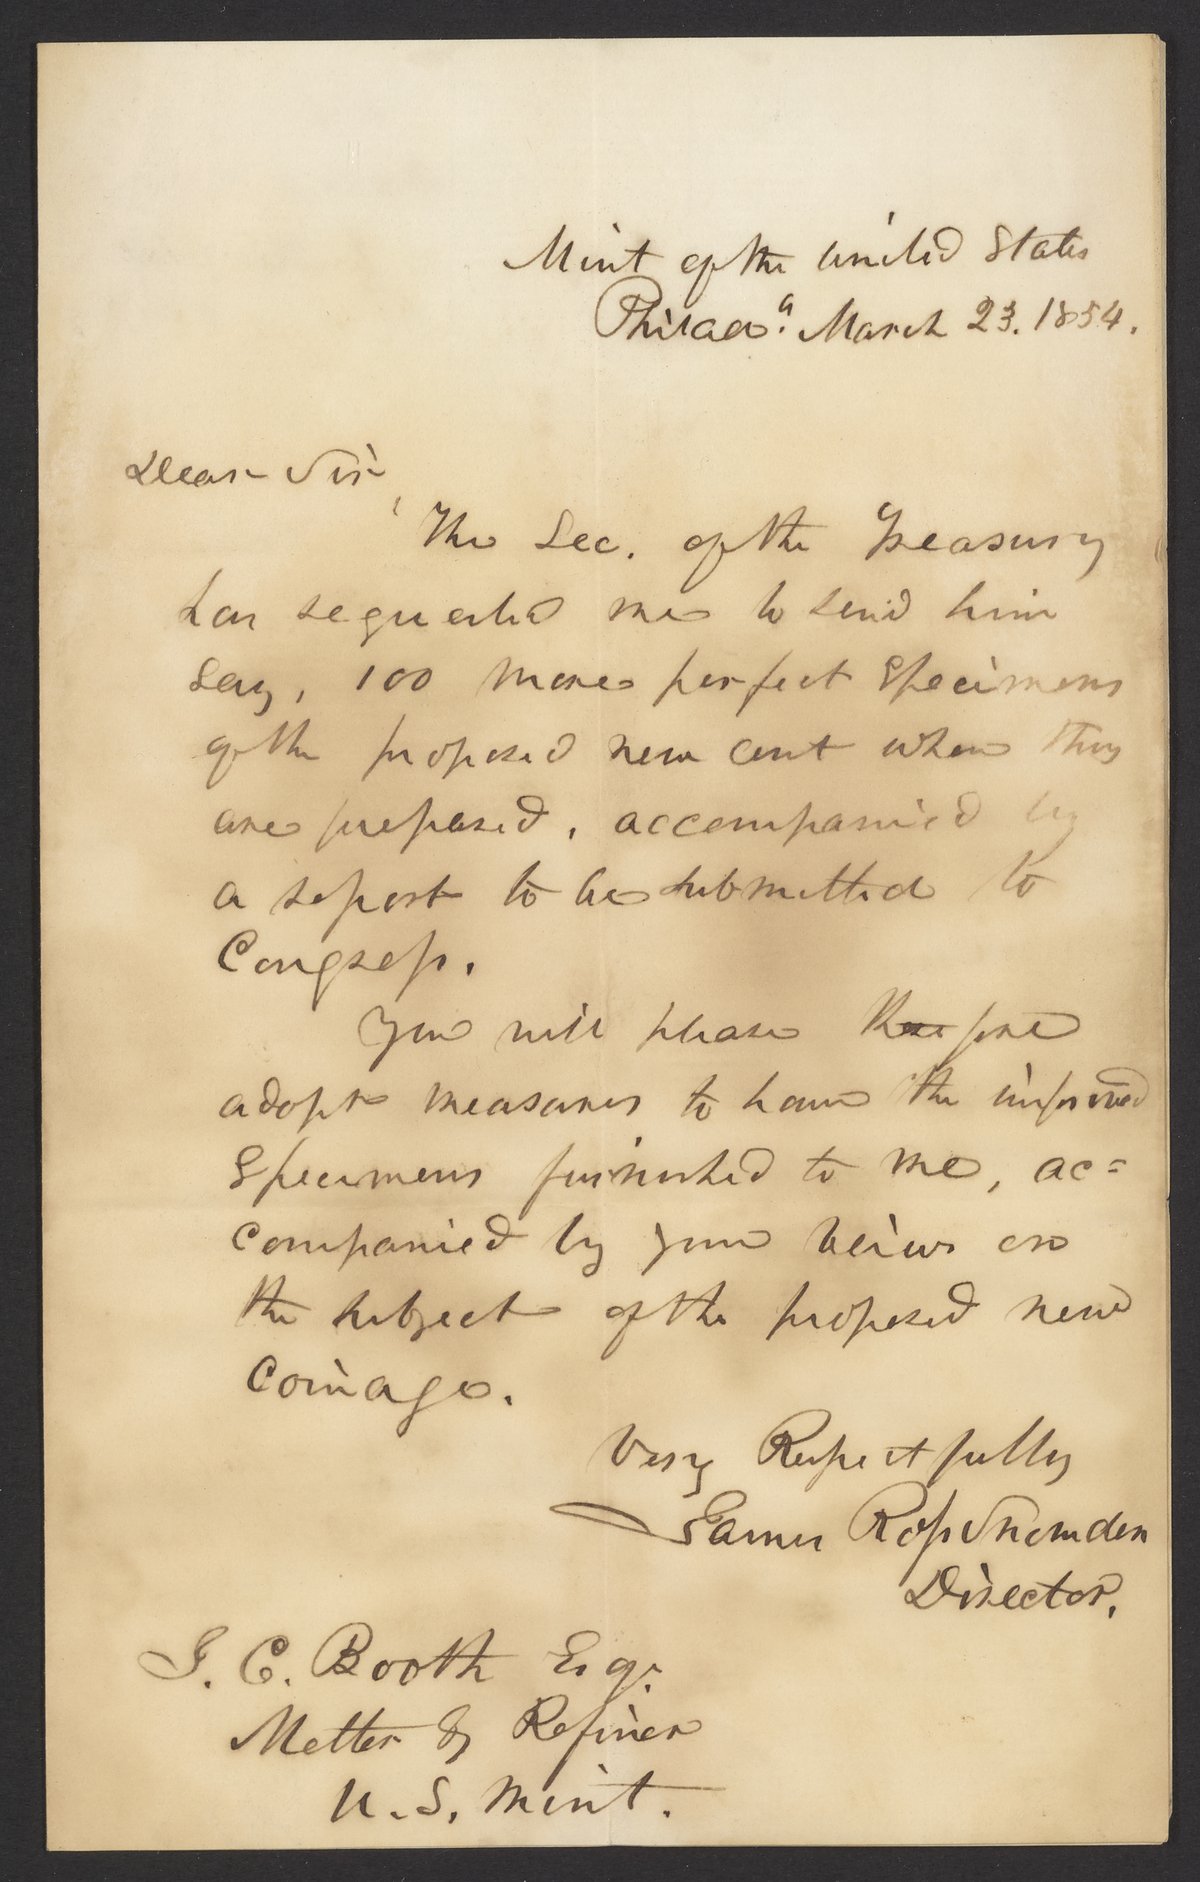 Mint of the United States
Philada. March 23. 1854.
Dear Sir,
The Sec. of the Treasury
has requested me to send him
say, 100 more perfect Specimens
of the proposed new cent when they
are prepared, accompanied by
a report to be submitted to
Congress.
You will please therefore
adopt measures to have the improved
Specimens furnished to me, ac=
companied by your views on
the subject of the proposed new
Coinage.
Very Respectfully
James Ross Snowden
Director.
J. C. Booth Esq.
Melter & Refiner
U. S. Mint.